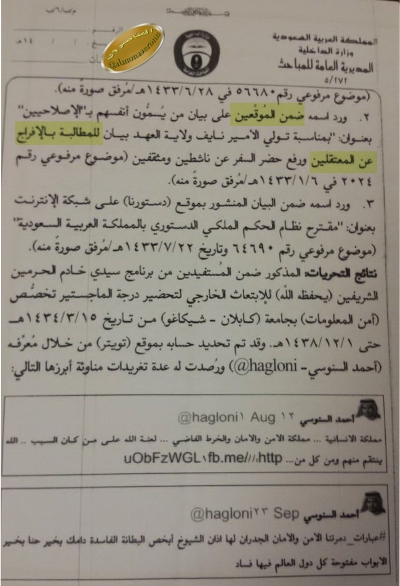 المملكة العربية السعودية
وزارة الداخلية
المديرية العامة للمباحث
٥/٢٧٢
الرقم
@almonaseron
(موضوع مرفوعي رقم ٥٦٦٨٠ في ١٤٣٣/٦/٢٨هـ/مُرفق صورة منه).
٢. ورد اسمه ضمن المُوقّعين على بيان من يسمُون أنفسهم بـ"الإصلاحيين"
بعنوان: "بمناسبة تولي الأمير نايف ولاية العهد بيان للمطالبة بالإفراج
عن المعتقلين ورفع حضر السفر عن ناشطين ومثقفين (موضوع مرفوعي رقم
٢٠٢٤ في ١٤٣٣/١/٦هـ/مُرفق صورة منه).
٣. ورد اسمه ضمن البيان المنشور بموقع (دستورنا) على شبكة الإنترنت
بعنوان: "مقترح نظام الحكم الملكي الدستوري بالمملكة العربية السعودية"
(موضوع مرفوعي رقم ٦٤٦٩٠ وتاريخ ١٤٣٣/٧/٢٢هـ/مُرفق صورةً منه).
نتائج التحريات: المذكور ضمن المُستفيدين من برنامج سيدي خادم الحرمين
الشريفين (يحفظه الله) للإبتعاث الخارجي لتحضير درجة الماجستير تخصُّص
(أمن المعلومات) بجامعة (كابلان - شيكاغو) مـن تـاريخ ١٤٣٤/٣/١٥هـ
حتى ١٤٣٨/١٢/١هـ. وقد تم تحديد حسابه بموقع (تويتر) من خلال معرفه
(أحمد السنوسي- hagloni@) ورُصدت له عدة تغريدات مناوئة أبرزها التالي:
أحمد السنوسي @hagloni١ Aug ١٢
مملكة الانسانية ... مملكة الامن والامان والخرط الفاضي ... لعنة الله على من كان السبب .. الله
ينتقم منهم ومن كل من... uObFzWGL١fb.me///http
أحمد السنوسي @hagloni٢٣ Sep
#عبارات_دمرتنا الامن والامان الجدران لها اذان الشيوخ أبخص البطانة الفاسدة دامك بخير حنا بخير
الابواب مفتوحة كل دول العالم فيها فساد